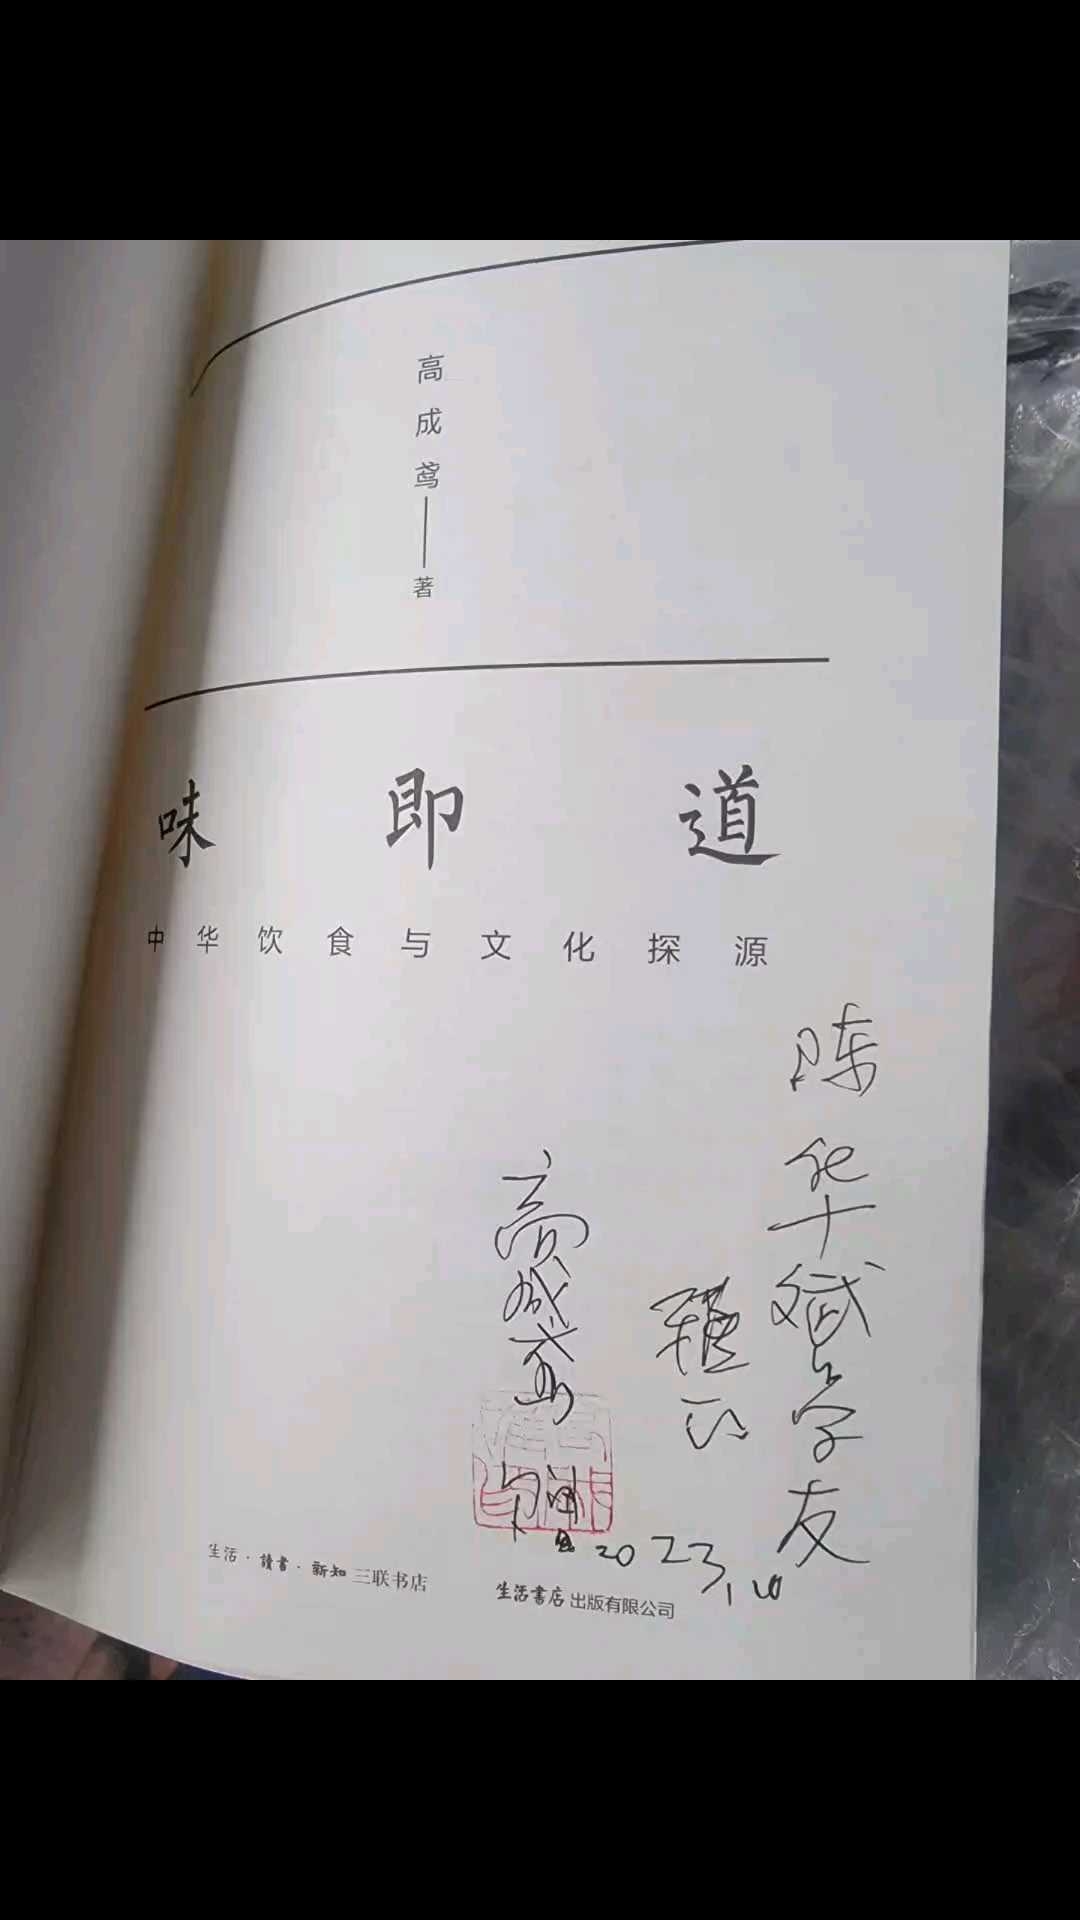 高成鸢——著
味即道
中华饮食与文化探源
陈华斌学友
雅正
高成鸢
2023.10
生活·讀書·新知三联书店
生活書店出版有限公司